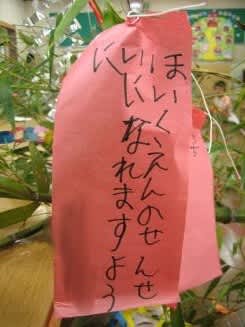 ほいくえんのせんせ
いになれますよう
に